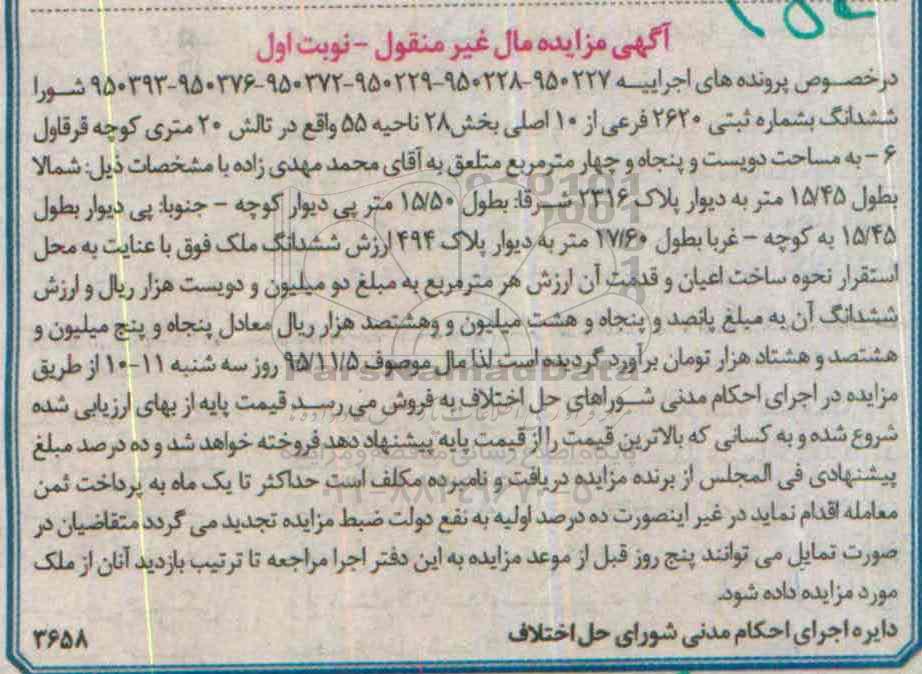 آگهی مزایده مال غیر منقول - نوبت اول
درخصوص پرونده های اجراییه ۹۵۰۲۲۷-۹۵۰۲۲۸-۹۵۰۲۲۹-۹۵۰۳۷۲-۹۵۰۳۷۶-۹۵۰۳۹۳ شورا
ششدانگ بشماره ثبتی ۲۶۲۰ فرعی از ۱۰ اصلی بخش۲۸ ناحیه ۵۵ واقع در تالش ۲۰ متری کوچه قرقاول
۶ - به مساحت دویست و پنجاه و چهار مترمربع متلعق به آقای محمد مهدی زاده با مشخصات ذیل: شمالا
بطول ۱۵/۴۵ متر به دیوار پلاک ۲۳۱۶ شرقا: بطول ۱۵/۵۰ متر پی دیوار کوچه - جنوبا: پی دیوار بطول
۱۵/۴۵ به کوچه - غربا بطول ۱۷/۶۰ متر به دیوار پلاک ۴۹۴ ارزش ششدانگ ملک فوق با عنایت به محل
استقرار نحوه ساخت اعیان و قدمت آن ارزش هر مترمربع به مبلغ دو میلیون و دویست هزار ریال و ارزش
ششدانگ آن به مبلغ پانصد و پنجاه و هشت میلیون و وهشتصد هزار ریال معادل پنجاه و پنج میلیون و
هشتصد و هشتاد هزار تومان برآورد گردیده است لذا مال موصوف ۹۵/۱۱/۵ روز سه شنبه ۱۱-۱۰ از طریق
مزایده در اجرای احکام مدنی شوراهای حل اختلاف به فروش می رسد قیمت پایه از بهای ارزیابی شده
شروع شده و به کسانی که بالاترین قیمت را از قیمت پایه پیشنهاد دهد فروخته خواهد شد و ده درصد مبلغ
پیشنهادی فی المجلس از برنده مزایده دریافت و نامبرده مکلف است حداکثر تا یک ماه به پرداخت ثمن
معامله اقدام نماید در غیر اینصورت ده درصد اولیه به نفع دولت ضبط مزایده تجدید می گردد متقاضیان در
صورت تمایل می توانند پنج روز قبل از موعد مزایده به این دفتر اجرا مراجعه تا ترتیب بازدید آنان از ملک
مورد مزایده داده شود.
دایره اجرای احکام مدنی شورای حل اختلاف
۳۶۵۸
ParsNamadData